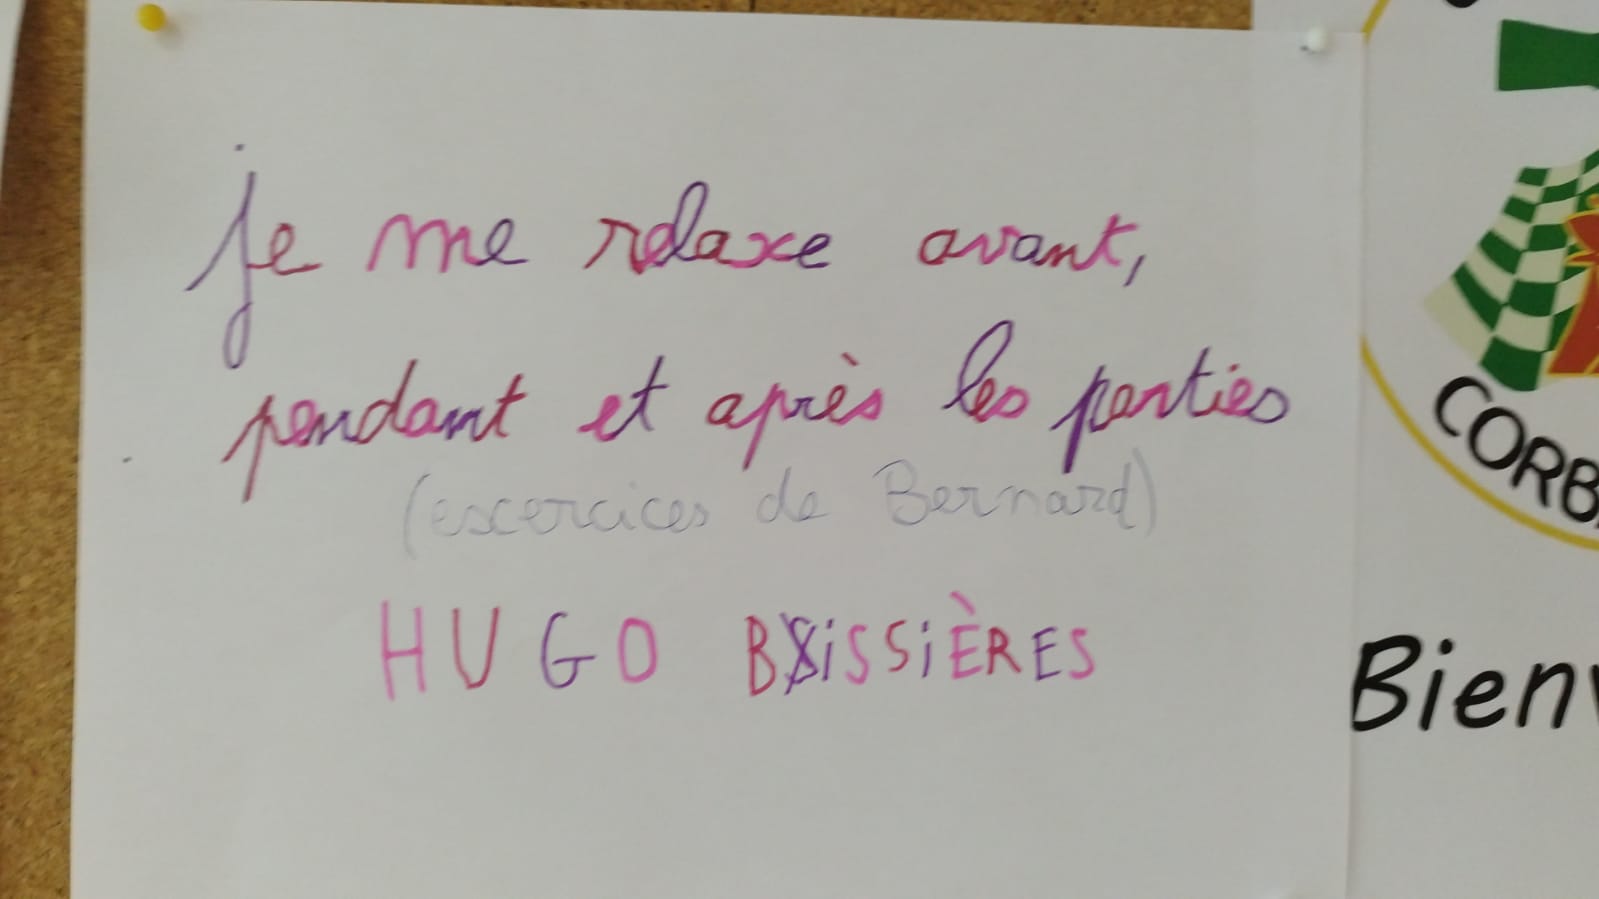 je me relaxe avant,
pendant et après les parties
(excercices de Bernard)
HUGO BOISSIÈRES
CORB
Bienv